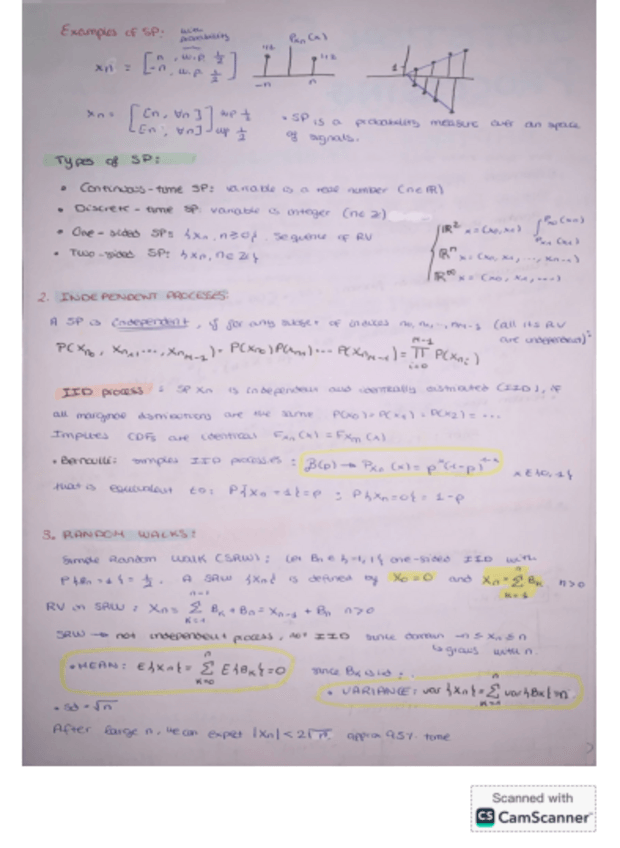 Examples of SP: with probability
Pxn(x)
xn = [n, w.p. 1/2
-n, w.p. 1/2]
1/2 1/2
-n n
1
xn = [[n, ∀n] wp 1/2
[-n, ∀n] wp 1/2]
• SP is a probability measure over an space of signals.
Types of SP:
• Continuous-time SP: variable is a real number (n∈ℝ)
• Discrete-time SP: variable is integer (n∈ℤ)
• One-sided SP: {xn, n≥0}. Sequence of RV
• Two-sided SP: {xn, n∈ℤ}
ℝ² x=(x0, x1)
ℝⁿ x=(x0, x1, ..., xn-1)
ℝ^∞ x=(x0, x1, ...)
2. INDEPENDENT PROCESSES:
A SP is independent, if for any subset of indices n0, n1, ..., nM-1 (all its RV are independent):
P(Xn0, Xn1, ..., XnM-1) = P(Xn0)P(Xn1)... P(XnM-1) = ∏_{i=0}^{M-1} P(Xni)
IID process: SP Xn is independent and identically distributed (IID), if
all marginal distributions are the same P(x0)=P(x1)=P(x2)=...
Implies CDFs are identical Fxn(x)=Fxm(x)
• Bernoulli: simples IID processes: B(p) → Pxn(x) = p^x(1-p)^{1-x} x∈{0,1}
that is equivalent to: P{Xn=1}=p; P{Xn=0}=1-p
3. RANDOM WALKS:
Simple Random Walk (SRW): let Bn∈{-1,1} one-sided IID with
P{Bn=1}=1/2. A SRW {Xn} is defined by X0=0 and Xn=∑_{k=1}^{n} Bk n>0
RV in SRW: Xn=∑_{k=1}^{n-1} Bk+Bn=Xn-1+Bn n>0
SRW → not independent process, not IID since domain -n≤Xn≤n
↳ grows with n
• MEAN: E{Xn}=∑_{k=0}^{n} E{Bk}=0
since Bk is iid:
• VARIANCE: var{Xn}=∑_{k=1}^{n} var{Bk}=n
• sd=√n
After large n, we can expect |Xn|<2√n approx 95% time
Scanned with
CS CamScanner